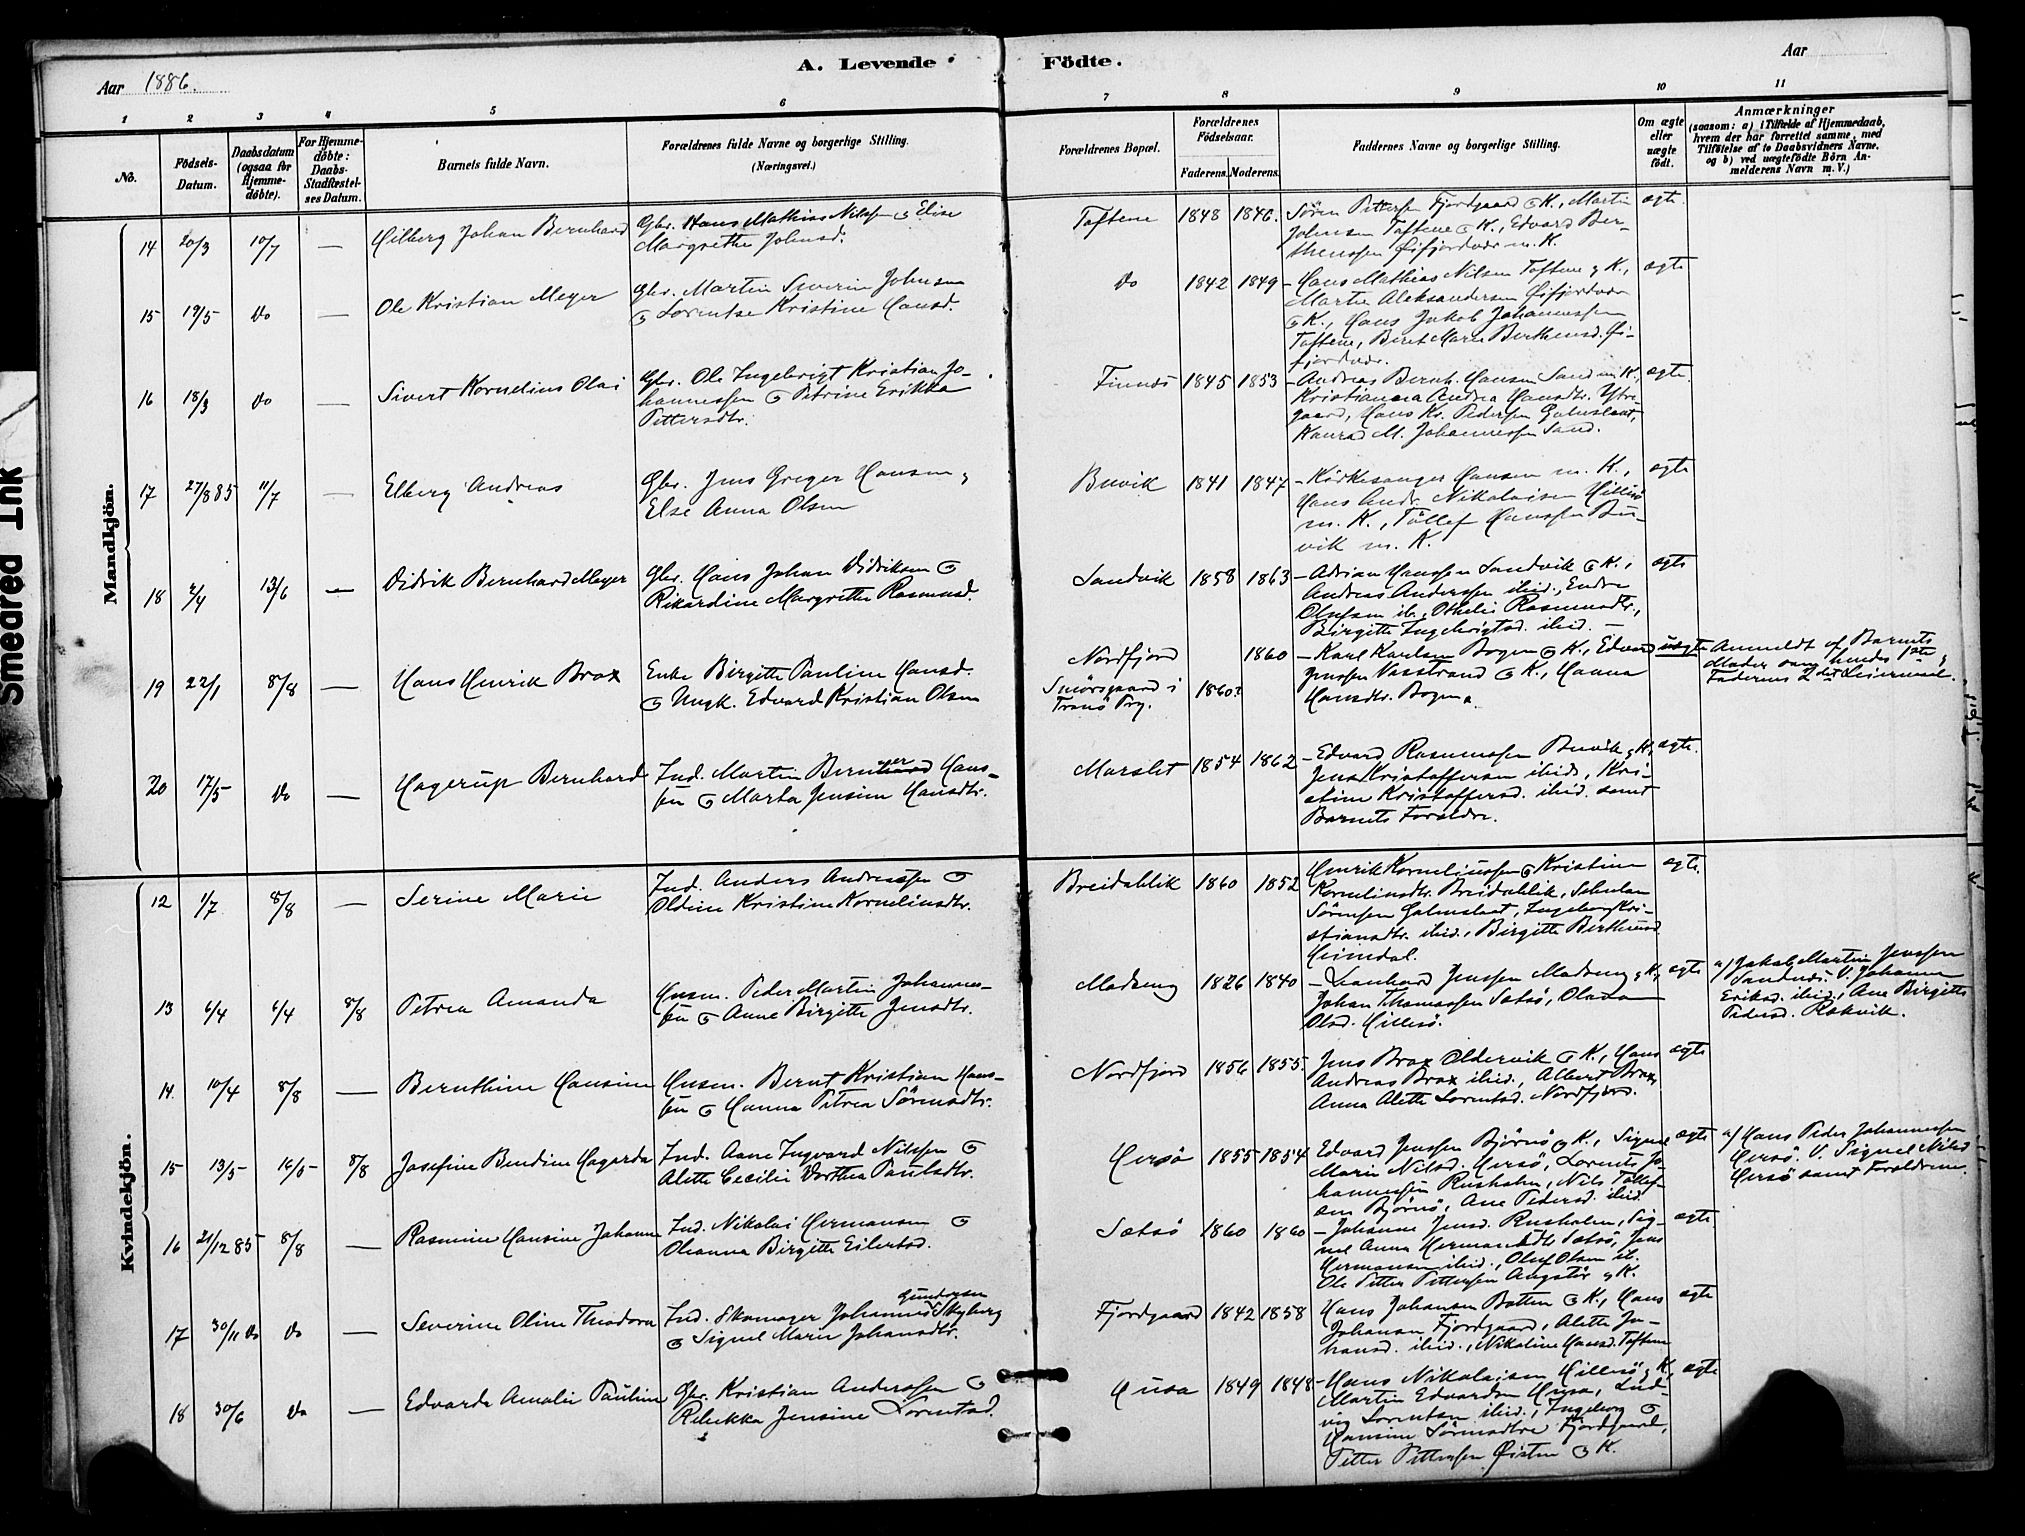 A. Levende Födte.
Aar 1886.
Aar
1 2 3 4 5 6 7 8 9 10 11
No.
Födsels-Datum.
Daabsdatum (ogsaa for Hjemme-döbte).
For Hjemme-döbte: Daabs-Stadfæstel-ses Datum.
Barnets fulde Navn.
Forældrenes fulde Navne og borgerlige Stilling. (Næringsvei.)
Forældrenes Bopæl.
Forældrenes Födselsaar.
Faderens. Moderens.
Faddernes Navne og borgerlige Stilling.
Om ægte eller uægte födt.
Anmærkninger
(saasom: a) i Tilfælde af Hjemmedaab,
hvem der har forrettet samme, med
Tilföielse af to Daabsvidners Navne.
og b) ved uægtefödte Börn An-
melderens Navn m. V.)
Smeared Ink
Mandkjön.
14 20/3 10/7 — Hilberg Johan Bernhard
Gbr. Hans Mathias Nilssen & Elise
Margrethe Johnsd.
Toftene 1848 1846.
Sören Pettersen Fjordgaard & K., Martin
Johnsen Toftene & K., Edvard Ber-
thenssen Öifjordvær m. K.
ægte.
15 19/5 Do — Ole Kristian Meyer
Gbr. Martin Severin Johnsen
& Lorentse Kristine Hansd.
Do 1842 1849
– Hans Mathias Nilsen Toftene & K.,
Martin Aleksandersen Öifjordvær
& K., Hans Jakob Johannessen
Toftene, Beret Marie Berthensd. Öi-
fjordvær.
ægte
16 18/3 Do — Sivert Kornelius Olai
Gbr. Ole Ingebrigt Kristian Jo-
hannessen & Petrine Erikka
Pettersdtr.
Finnes 1845 1853
– Andreas Bernh. Hansen Sand m. K.,
Kristianna Andrea Hansdtr. Ytre-
gaard, Hans Kr. Pedersen
Konrad M. Johannessen Sand.
ægte.
17 27/8 85 11/7 — Elberg Andreas
Gbr. Jens Greger Hansen &
Else Anna Olsen
Buvik 1841 1847
– Kirkesanger Hansen m. K.,
Hans Andr. Nikolaisen Hillesö
m. K., Tollef Hanssen Bu-
vik m. K.
ægte
18 2/4 13/6 — Didrik Bernhard Meyer
Gbr. Hans Johan Didriksen &
Rikardine Margrethe Rasmusd.
Sandvik 1858 1863
– Adrian Hanssen Sandvik & K.,
Andreas Anderssen ibid., Endre
Olufsen ib., Othelie Rasmusdtr.,
Birgitte Ingebrigtsd. ibid. –
ægte
19 22/1 8/8 — Hans Henrik Brox
Enke Birgitte Pauline Hansd.
& Ungk. Edvard Kristian Olsen
Nordfjord
Smörsgaard i
Tranö Prg.
1860? 1860
– Karl Karlsen Bogen & K., Edvard
Jenssen Vasstrand & K., Hanna
Hansdtr. Bogen.
uægte
Anmeldt af Barnets
Moder som hendes 1ste &
Faderens 2det Leiermaal.
20 17/5 Do — Hagerup Bernhard
Ind. Martin Berner Hans-
sen & Marta Jensine Hansdtr.
Marslet 1854 1862
– Edvard Rasmussen Buvik & K.,
Jens Kristoffersen ibid., Kri-
stine Kristoffersd. ibid. samt
Barnets Forældre.
ægte.
Kvindekjön.
12 1/7 8/8 — Serine Marie
Ind. Anders Andreassen &
Oldine Kristine Korneliusdtr.
Breidablik 1860 1852
Henrik Korneliussen & Kristine
Korneliusdtr. Breidablik,
Sörensen Ingeborg Kri-
stiansdtr. ibid., Birgitte Berthensd.
Heimdal.
ægte.
13 6/4 6/4 8/8 Petrea Amanda
Husm. Peder Martin Johannes-
sen & Anne Birgitte Jensdtr.
Madseng 1826 1840
– Leonhard Jenssen Madseng & K.,
Johan Thomassen Sætsö, Olava
Olsd. Hillesö.
ægte
a/ Jakob Martin Jenssen
Sandnes. V. Johanna
Eriksd. ibid., Ane Birgitte
Pedersd. Rakvik.
14. 10/4 8/8 — Bernthine Hansine
Husm. Bernt Kristian Hans-
sen & Hanna Petrea Sörensdtr.
Nordfjord 1856 1855.
Jens Brox Oldervik & K., Hans
Andreas Brox ibid., Albert Brox,
Anna Alette Lorentsd. Nordfjord.
ægte
15 13/5 16/5 8/8 Josefine Bendine Hagarda
Ind. Aane Ingvard Nilssen &
Alette Cecilie Dorthea Paulsdtr.
Hersö 1855 1854
Edvard Jenssen Bjørnö & K., Signe
Marie Nilsd. Hersö, Lorents Jo-
hannessen Rusholm, Nils Tollef-
sen Bjørnö, Ane Pedersd. ibid
ægte
a/ Hans Peder Johannessen
Hersö. V. Signel Nilsd
Hersö samt Forældrene.
16 21/12 85 8/8 — Rasmine Hansine Johanne
Ind. Nikolai Hermansen &
Oleanna Birgitte Eilertsd.
Sætsö 1860 1860
– Johanne Jensd. Rusholm, Sig-
nel Anna Hermansdtr. Sætsö, Jens
Hermansen ibid., Oluf Olsen ib.
Ole Petter Pettersen & K.
ægte
17 30/11 Do Do — Severine Oline Theodora
Ind. Skomager Johannes Gundersen Skyberg
& Signel Marie Johansdtr.
Fjordgaard 1842 1858
Hans Johansen Botten & K., Hans
Johansen Fjordgaard, Alette Jo-
hansd. ibid., Nikoline Hansd. Toftene
ægte
18 30/6 Do — Edvarda Amalie Pauline
Gbr. Kristian Anderssen &
Rebekka Jensine Lorentsd.
Husa 1849 1848
– Hans Nikolaisen Hillesö & K.,
Martin Edvardsen Husa, Lud-
vig Lorentsen ibid., Ingeborg &
Hansine Sörensdtre Fjordgaard,
Petter Pettersen Öisten & K.
ægte